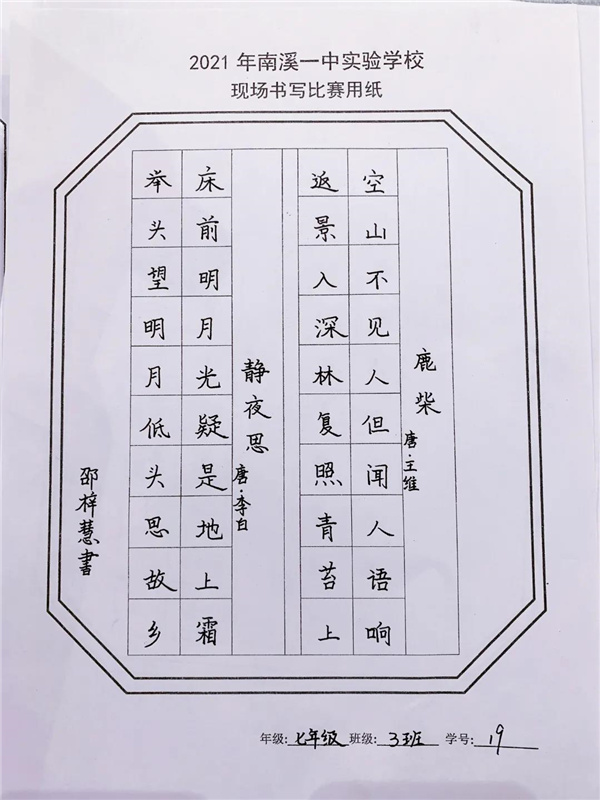 2021 年南溪一中实验学校
现场书写比赛用纸
鹿柴
唐·王维
空山不见人但闻人语响
返景入深林复照青苔上
静夜思
唐·李白
床前明月光疑是地上霜
举头望明月低头思故乡
邵梓慧書
年级:七年级 班级:3班 学号:19